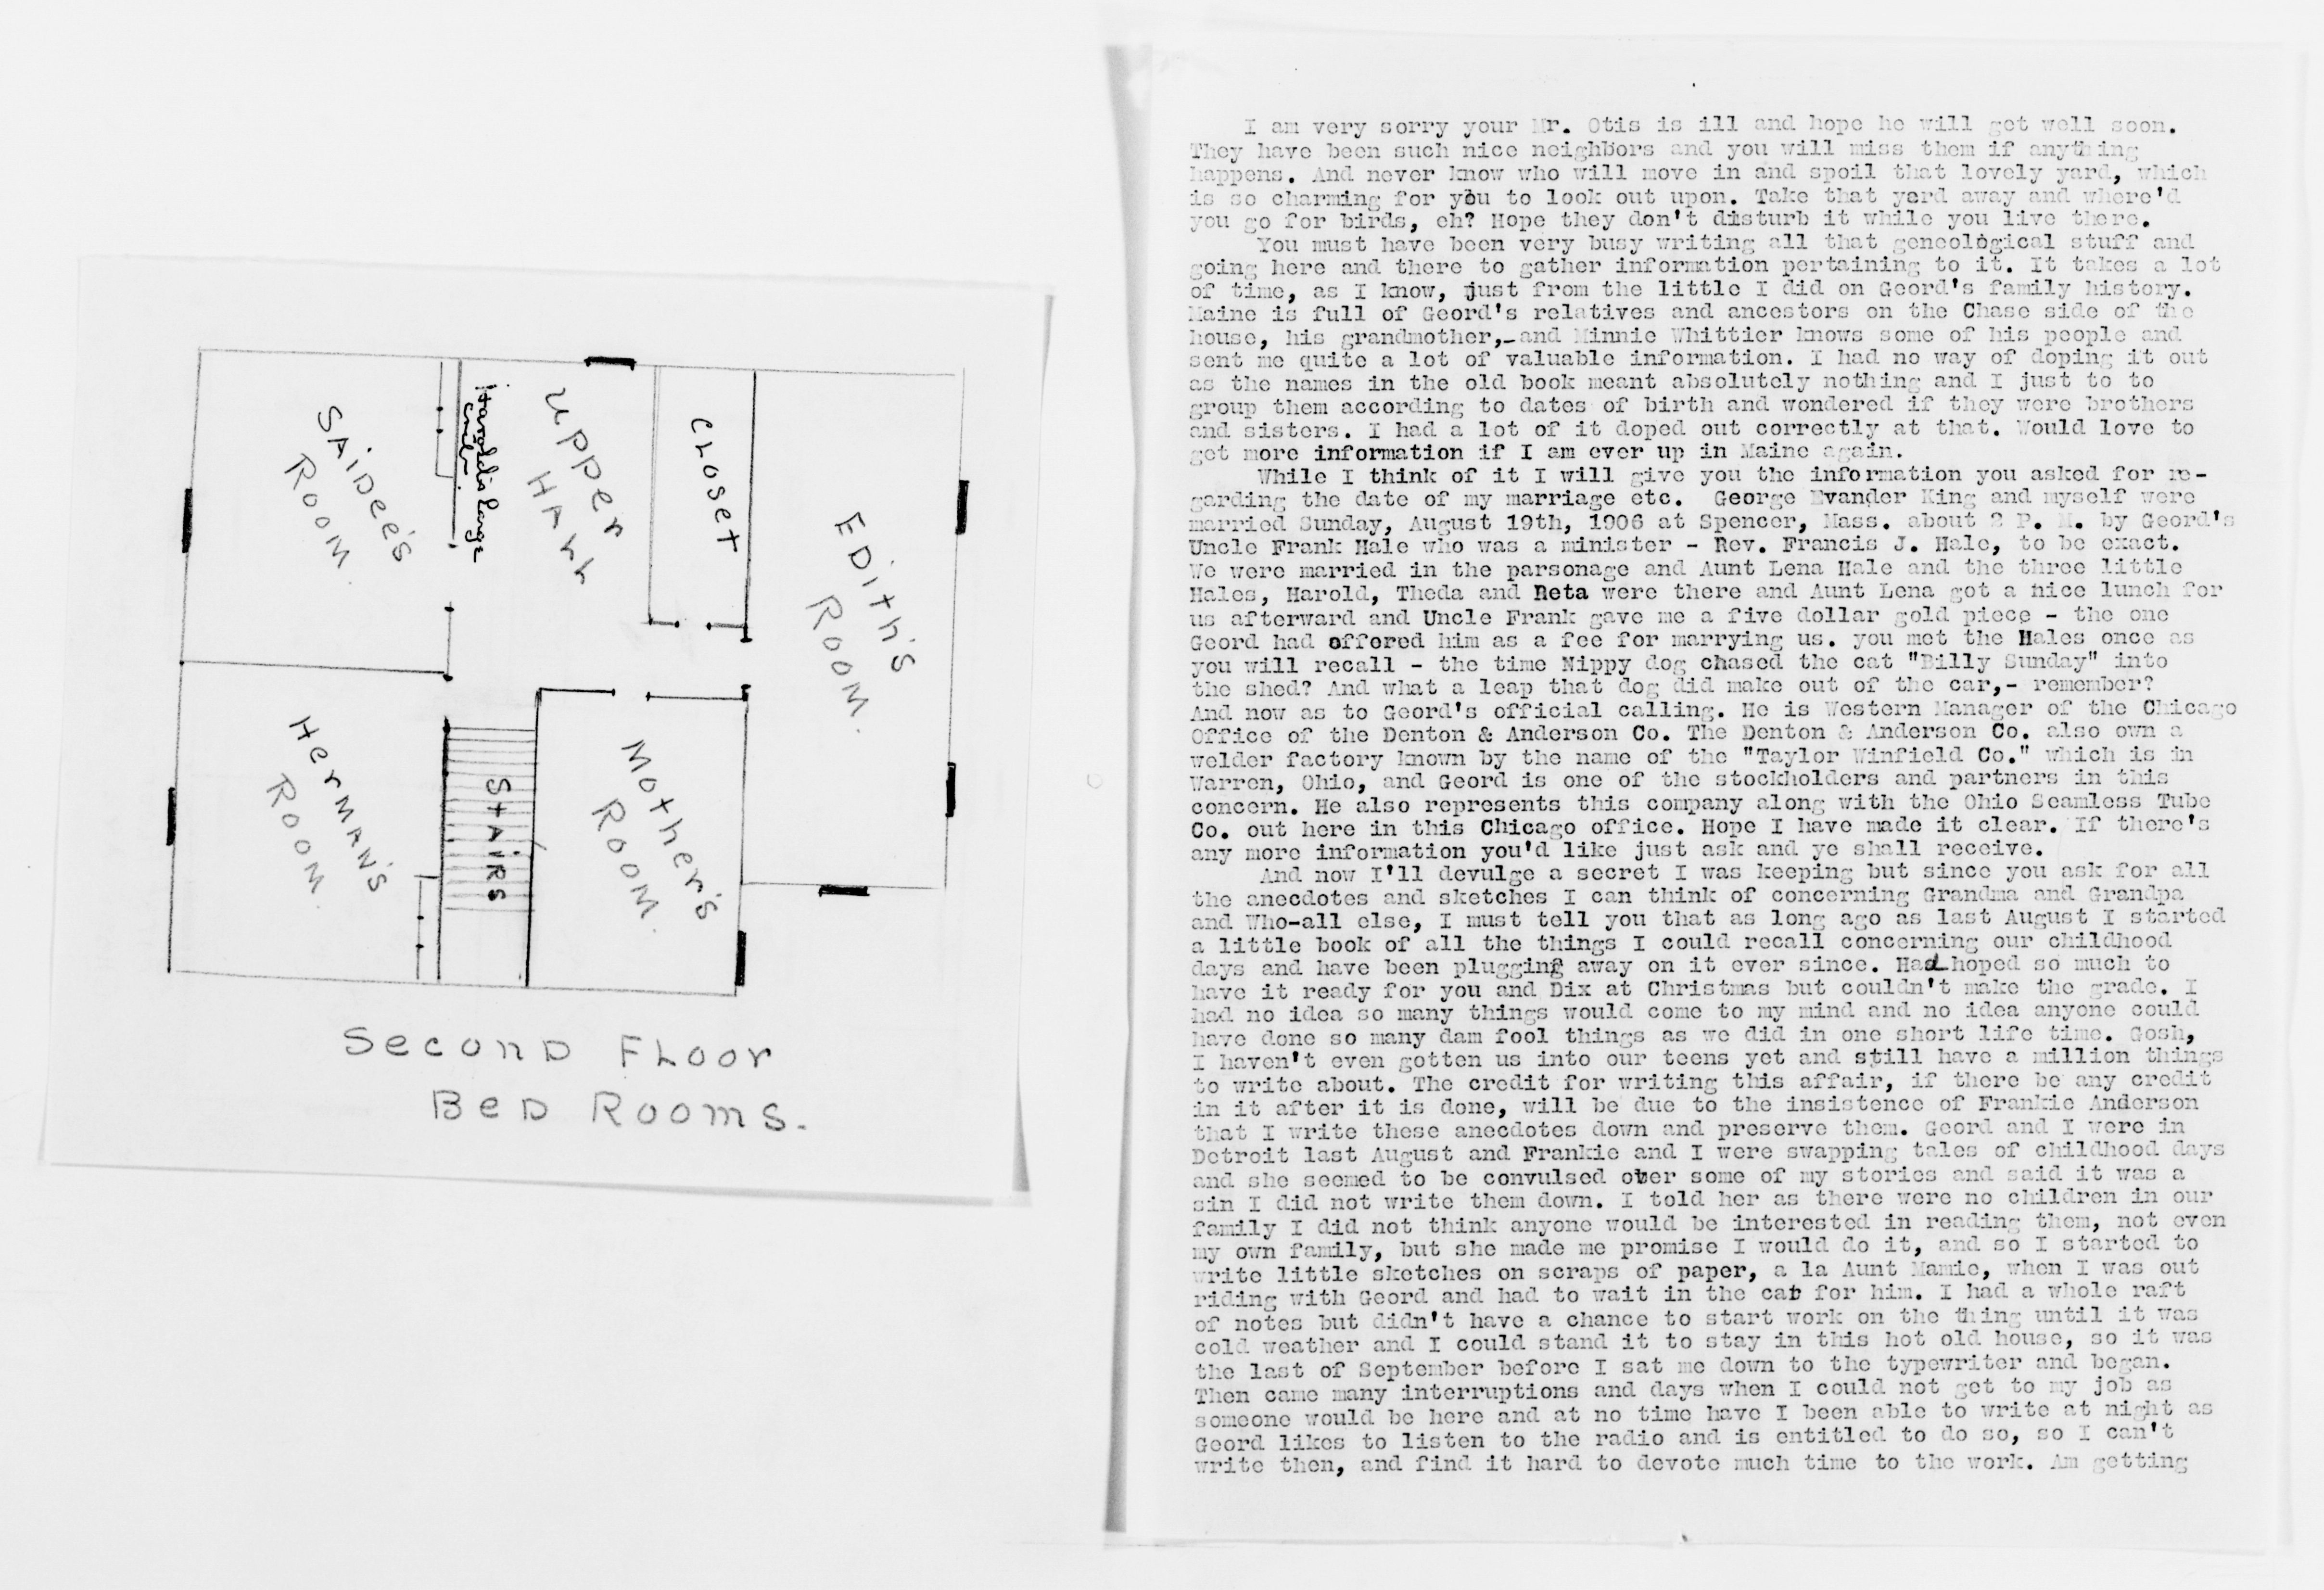 SAiDee's
ROOM
Harold's large
crib.
upper
HAll
CLoset
EDith's
ROOM.
HerMAN's
ROOM
StAiRs
Mother's
ROOM.
Second Floor
Bed Rooms.
I am very sorry your Mr. Otis is ill and hope he will get well soon.
They have been such nice neighbors and you will miss them if anything
happens. And never know who will move in and spoil that lovely yard, which
is so charming for you to look out upon. Take that yard away and where'd
you go for birds, eh? Hope they don't disturb it while you live there.
You must have been very busy writing all that geneological stuff and
going here and there to gather information pertaining to it. It takes a lot
of time, as I know, just from the little I did on Geord's family history.
Maine is full of Geord's relatives and ancestors on the Chase side of the
house, his grandmother,-and Minnie Whittier knows some of his people and
sent me quite a lot of valuable information. I had no way of doping it out
as the names in the old book meant absolutely nothing and I just to to
group them according to dates of birth and wondered if they were brothers
and sisters. I had a lot of it doped out correctly at that. Would love to
get more information if I am ever up in Maine again.
While I think of it I will give you the information you asked for re-
garding the date of my marriage etc. George Evander King and myself were
married Sunday, August 19th, 1906 at Spencer, Mass. about 2 P. M. by Geord's
Uncle Frank Hale who was a minister - Rev. Francis J. Hale, to be exact.
We were married in the parsonage and Aunt Lena Hale and the three little
Hales, Harold, Theda and Neta were there and Aunt Lena got a nice lunch for
us afterward and Uncle Frank gave me a five dollar gold piece - the one
Geord had offered him as a fee for marrying us. you met the Hales once as
you will recall - the time Nippy dog chased the cat "Billy Sunday" into
the shed? And what a leap that dog did make out of the car,- remember?
And now as to Geord's official calling. He is Western Manager of the Chicago
Office of the Denton & Anderson Co. The Denton & Anderson Co. also own a
welder factory known by the name of the "Taylor Winfield Co." which is in
Warren, Ohio, and Geord is one of the stockholders and partners in this
concern. He also represents this company along with the Ohio Seamless Tube
Co. out here in this Chicago office. Hope I have made it clear. If there's
any more information you'd like just ask and ye shall receive.
And now I'll devulge a secret I was keeping but since you ask for all
the anecdotes and sketches I can think of concerning Grandma and Grandpa
and Who-all else, I must tell you that as long ago as last August I started
a little book of all the things I could recall concerning our childhood
days and have been plugging away on it ever since. Had hoped so much to
have it ready for you and Dix at Christmas but couldn't make the grade. I
had no idea so many things would come to my mind and no idea anyone could
have done so many dam fool things as we did in one short life time. Gosh,
I haven't even gotten us into our teens yet and still have a million things
to write about. The credit for writing this affair, if there be any credit
in it after it is done, will be due to the insistence of Frankie Anderson
that I write these anecdotes down and preserve them. Geord and I were in
Detroit last August and Frankie and I were swapping tales of childhood days
and she seemed to be convulsed over some of my stories and said it was a
sin I did not write them down. I told her as there were no children in our
family I did not think anyone would be interested in reading them, not even
my own family, but she made me promise I would do it, and so I started to
write little sketches on scraps of paper, a la Aunt Mamie, when I was out
riding with Geord and had to wait in the car for him. I had a whole raft
of notes but didn't have a chance to start work on the thing until it was
cold weather and I could stand it to stay in this hot old house, so it was
the last of September before I sat me down to the typewriter and began.
Then came many interruptions and days when I could not get to my job as
someone would be here and at no time have I been able to write at night as
Geord likes to listen to the radio and is entitled to do so, so I can't
write then, and find it hard to devote much time to the work. Am getting